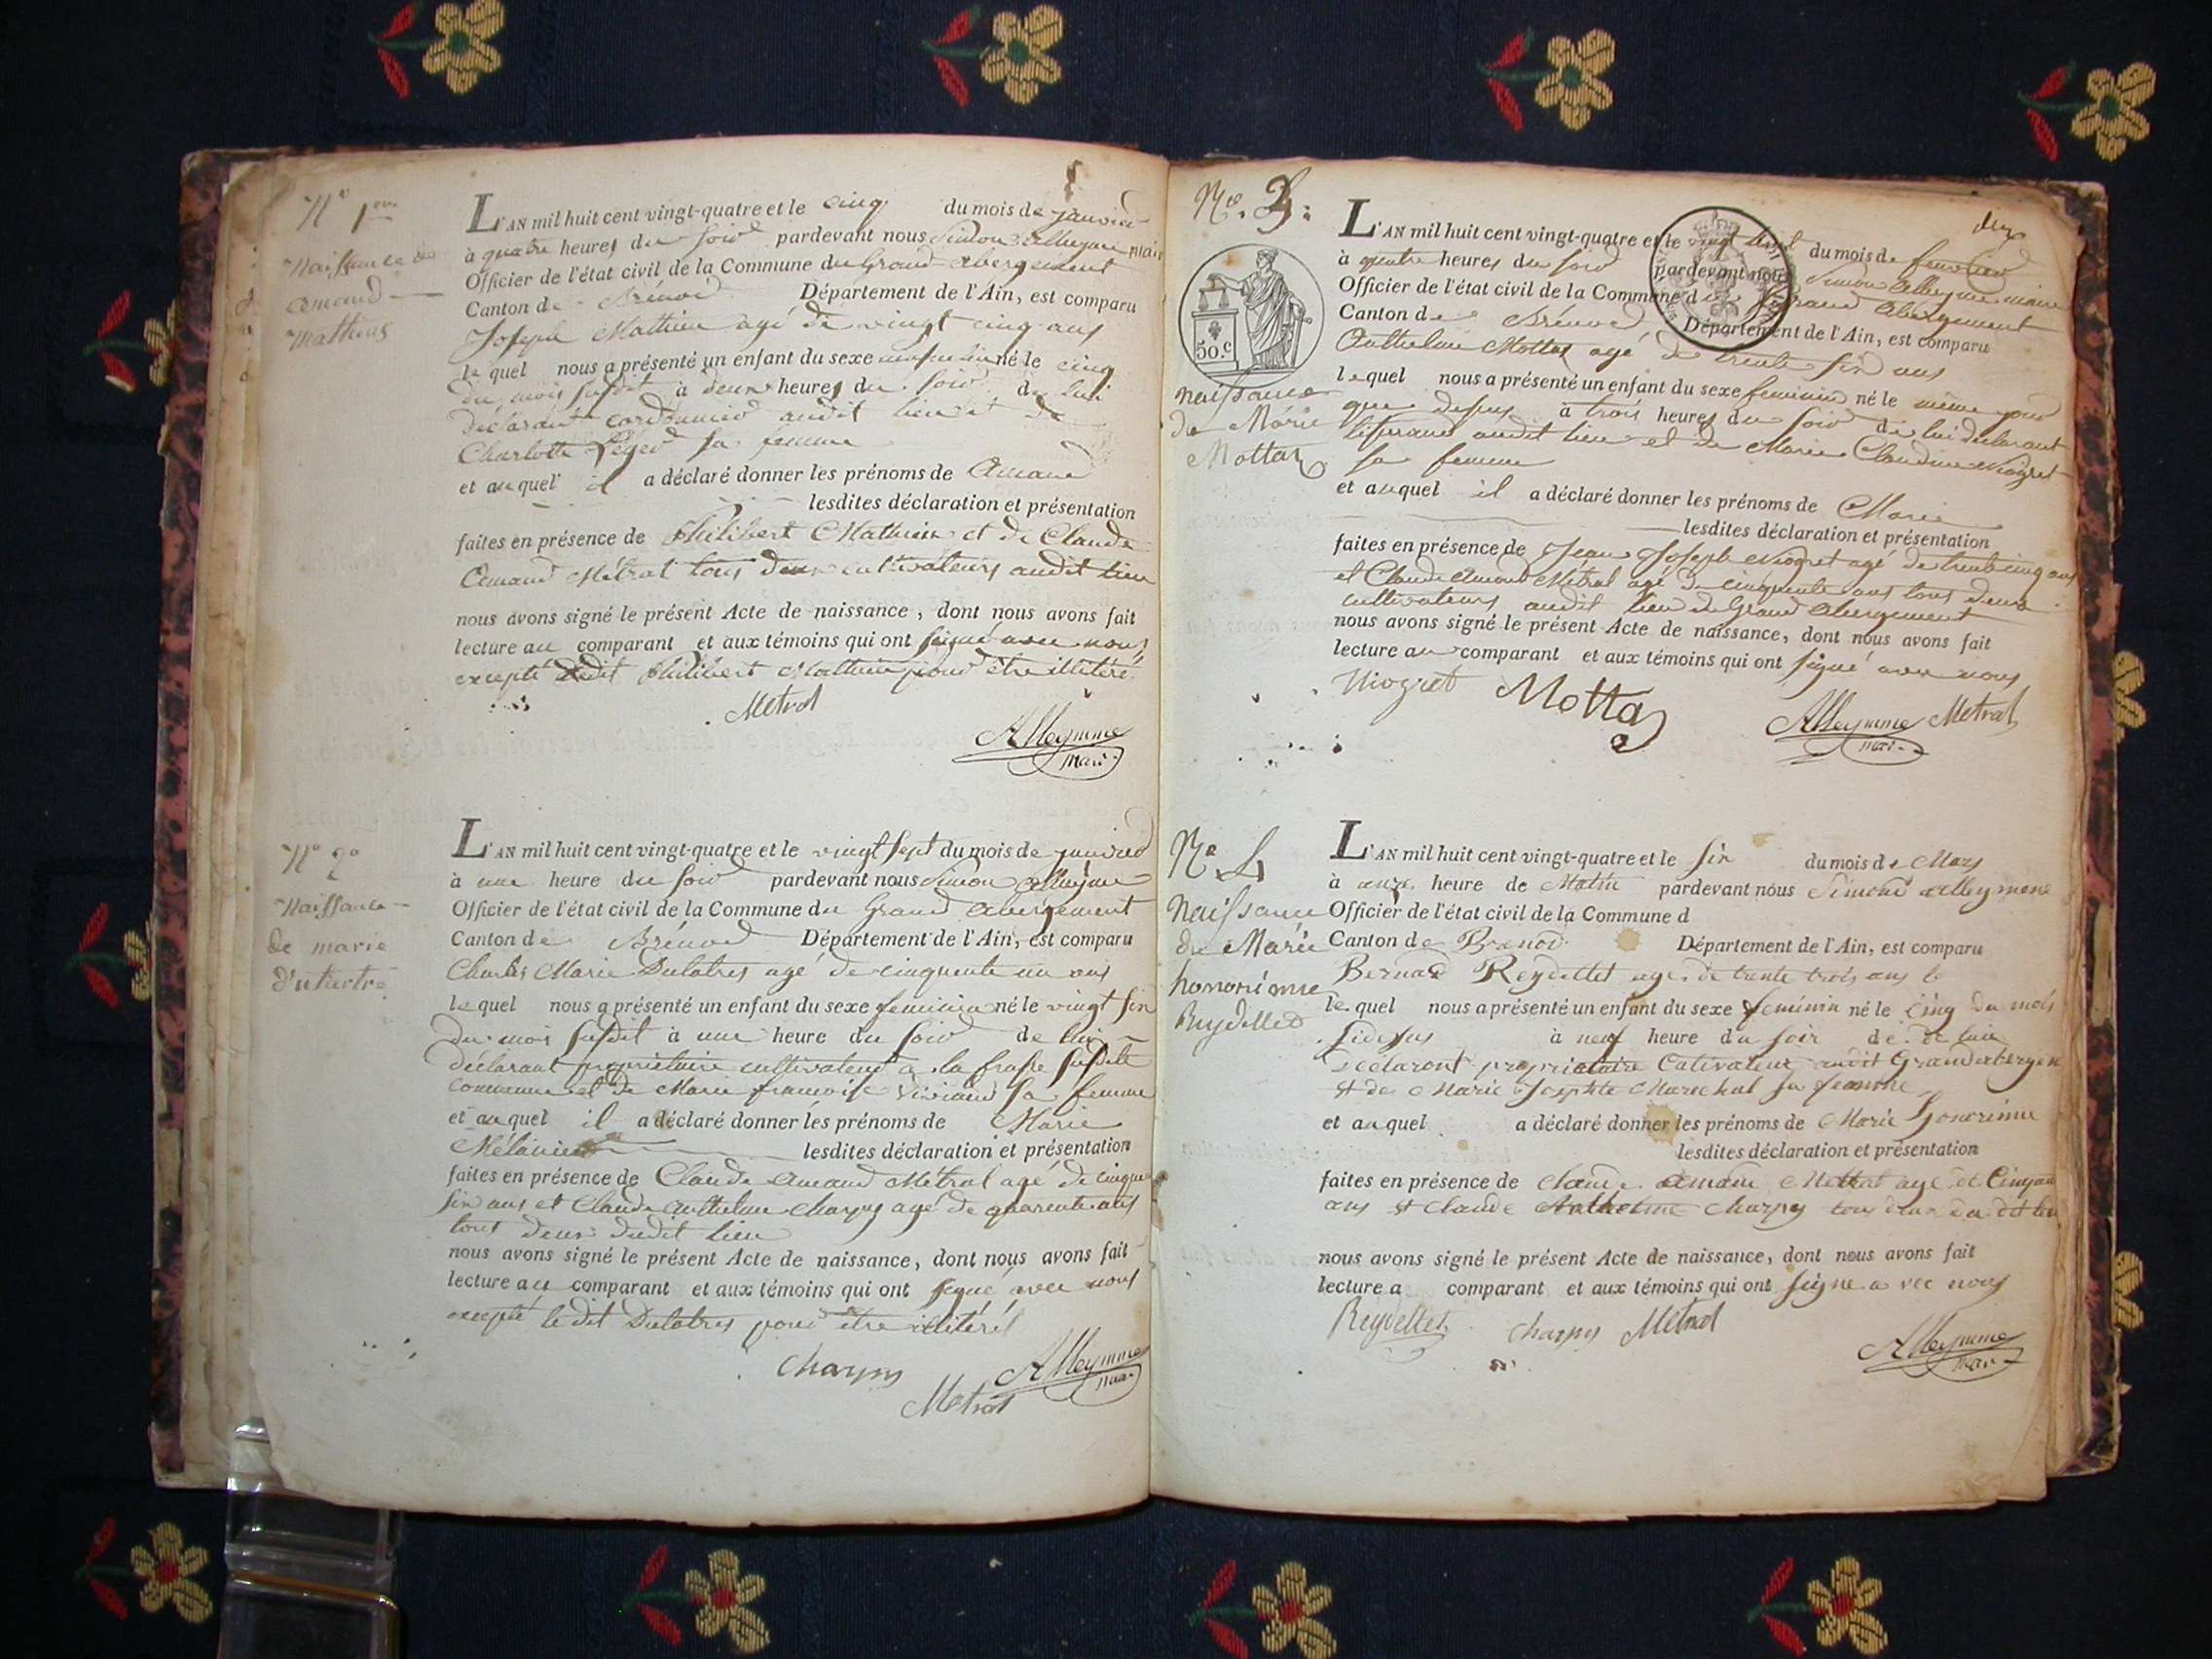 N° 1er
Naissance de
amand
Mathieu
L'AN mil huit cent vingt-quatre et le cinq du mois de janvier
à quatre heures du soir pardevant nous Simon alleyme maire
Officier de l'état civil de la Commune du Grand abergement
Canton de Brénod Département de l'Ain, est comparu
Joseph Mathieu agé de vingt cinq ans
lequel nous a présenté un enfant du sexe masculin né le cinq
du mois susdit à deux heures du soir de lui
déclarant cordonnier audit lieu et de
Charlotte Léger sa femme
et auquel il a déclaré donner les prénoms de Amand
lesdites déclaration et présentation
faites en présence de Philibert Mathieu et de Claude
Amand Métral tous deux cultivateurs audit lieu
nous avons signé le présent Acte de naissance, dont nous avons fait
lecture au comparant et aux témoins qui ont signé avec nous
excepté ledit Philibert Mathieu pour être illitéré
Metral
Alleymme
maire
N° 2e
Naissance
de marie
L'AN mil huit cent vingt-quatre et le vingt sept du mois de janvier
à une heure du soir pardevant nous Simon alleyme
Officier de l'état civil de la Commune du Grand abergement
Canton de Brénod Département de l'Ain, est comparu
Charles Marie Dutatres agé de cinquante un ans
lequel nous a présenté un enfant du sexe feminin né le vingt six
du mois susdit à une heure du soir de lui
déclarant propriétaire cultivateur a la susdite
commune et de Marie françoise Viviand sa femme
et auquel il a déclaré donner les prénoms de Marie
Mélanie lesdites déclaration et présentation
faites en présence de Claude Amand Métral agé de cinquante
six ans et Claude Anthelme Charpy agé de quarente ans
tous deux dudit lieu
nous avons signé le présent Acte de naissance, dont nous avons fait
lecture au comparant et aux témoins qui ont signé avec nous
excepté le dit Dutatres pour être illitéré
Charpy
Alleymme
maire
Metral
N° 3
deux
50.c
naissance
de Marie
Mottaz
L'AN mil huit cent vingt-quatre et le vingt huit du mois de fevrier
à quatre heures du soir pardevant nous Simon alleyme maire
Officier de l'état civil de la Commune du Grand Abergement
Canton de Brénod Département de l'Ain, est comparu
Anthelme Mottaz agé de trente six ans
lequel nous a présenté un enfant du sexe feminin né le même jour
que dessus à trois heures du soir de lui declarant
tisserand audit lieu et de Marie Claudine Niogret
sa femme
et auquel il a déclaré donner les prénoms de Marie
lesdites déclaration et présentation
faites en présence de Jean Joseph Niogret agé de trente cinq ans
et Claude Amand Metral agé de cinquante ans tous deux
cultivateurs audit lieu du Grand Abergement
nous avons signé le présent Acte de naissance, dont nous avons fait
lecture au comparant et aux témoins qui ont signé avec nous
Niogret Mottaz
Alleymme Metral
maire
N° 4
Naissance
de Marie
honorinne
Reydellet
L'AN mil huit cent vingt-quatre et le six du mois de Mars
à onze heure de Matin pardevant nous Simond alleymene
Officier de l'état civil de la Commune d
Canton de Brenod Département de l'Ain, est comparu
Bernard Reydellet age de trente trois ans
lequel nous a présenté un enfant du sexe feminin né le cinq du mois
sidessus à neuf heure du soir de de luis
declarant propriataire Cultivateur audit Grandabergem
et de Marie Josephte Marechal sa femme
et auquel a déclaré donner les prénoms de Marie Honorinne
lesdites déclaration et présentation
faites en présence de Claude amand Mettral age de Cinquante
ans et Claude Anthelme Charpy tous deux du dit lieu
nous avons signé le présent Acte de naissance, dont nous avons fait
lecture a comparant et aux témoins qui ont signe a vec nous
Reydellet Charpy Métral
Alleymme
maire